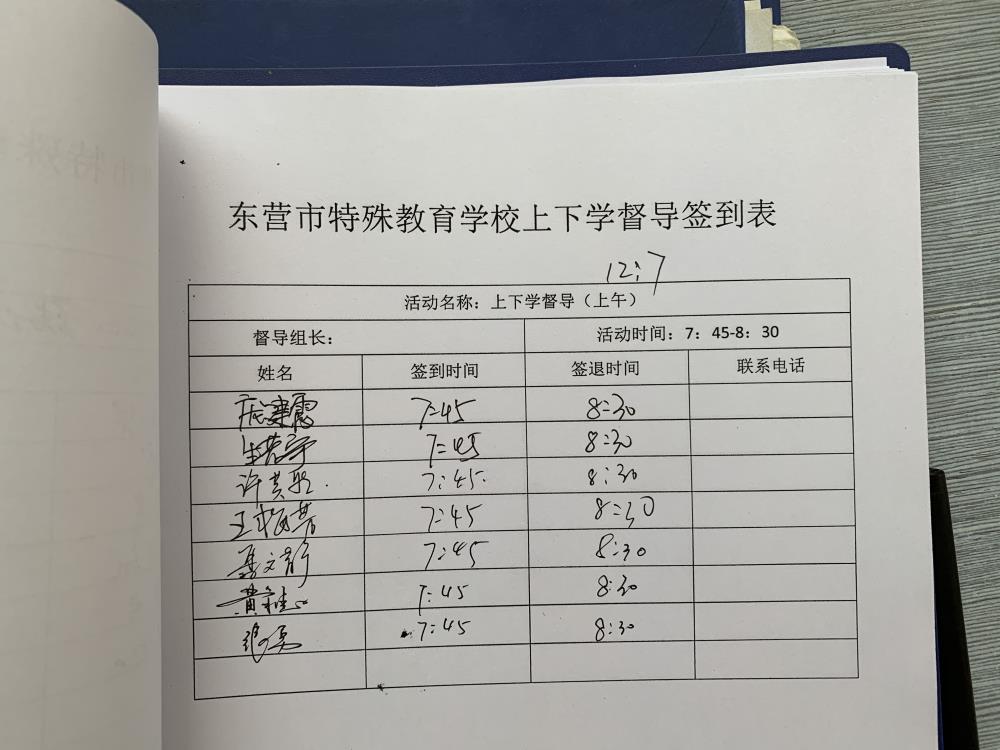 东营市特殊教育学校上下学督导签到表
12:7
活动名称：上下学督导（上午）
督导组长： 活动时间：7：45-8：30
姓名 签到时间 签退时间 联系电话
7:45 8:30
7:45 8:30
许 7:45 8:30
王 7:45 8:30
文静 7:45 8:30
黄 7:45 8:30
7:45 8:30